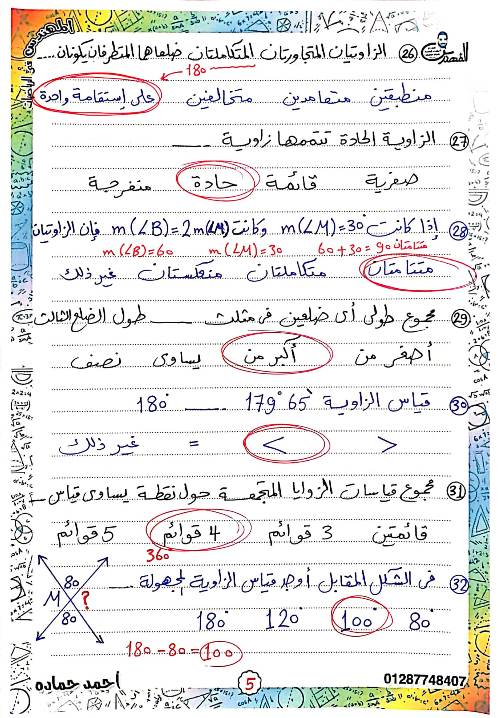 المهندس في الرياضيات
26 الزاويتان المتجاورتان المتكاملتان ضلعاها المتطرفان يكونان .....
180
منطبقين متعامدين متخالفين على إستقامة واحدة
27 الزاوية الحادة تتممها زاوية ____
صفرية قائمة حادة منفرجة
28 إذا كانت m(∠M)=30° وكانت m(∠B)=2m(∠M) فإن الزاويتان
m(∠B)=60 m(∠M)=30 60+30=90 متتامتان
متتامتان متكاملتان منعكستان غير ذلك
29 مجموع طولى أى ضلعين فى مثلث ____ طول الضلع الثالث
أصغر من أكبر من يساوى نصف
30 قياس الزاوية 179° 65' ____ 180°
> < = غير ذلك
31 مجموع قياسات الزوايا المتجمعة حول نقطة يساوى قياس __
قائمتين 3 قوائم 4 قوائم 5 قوائم
360
32 فى الشكل المقابل أوجد قياس الزاوية المجهولة ____
80
M ?
80
80° 100° 120° 180°
180-80=100
احمد حماده
5
01287748407